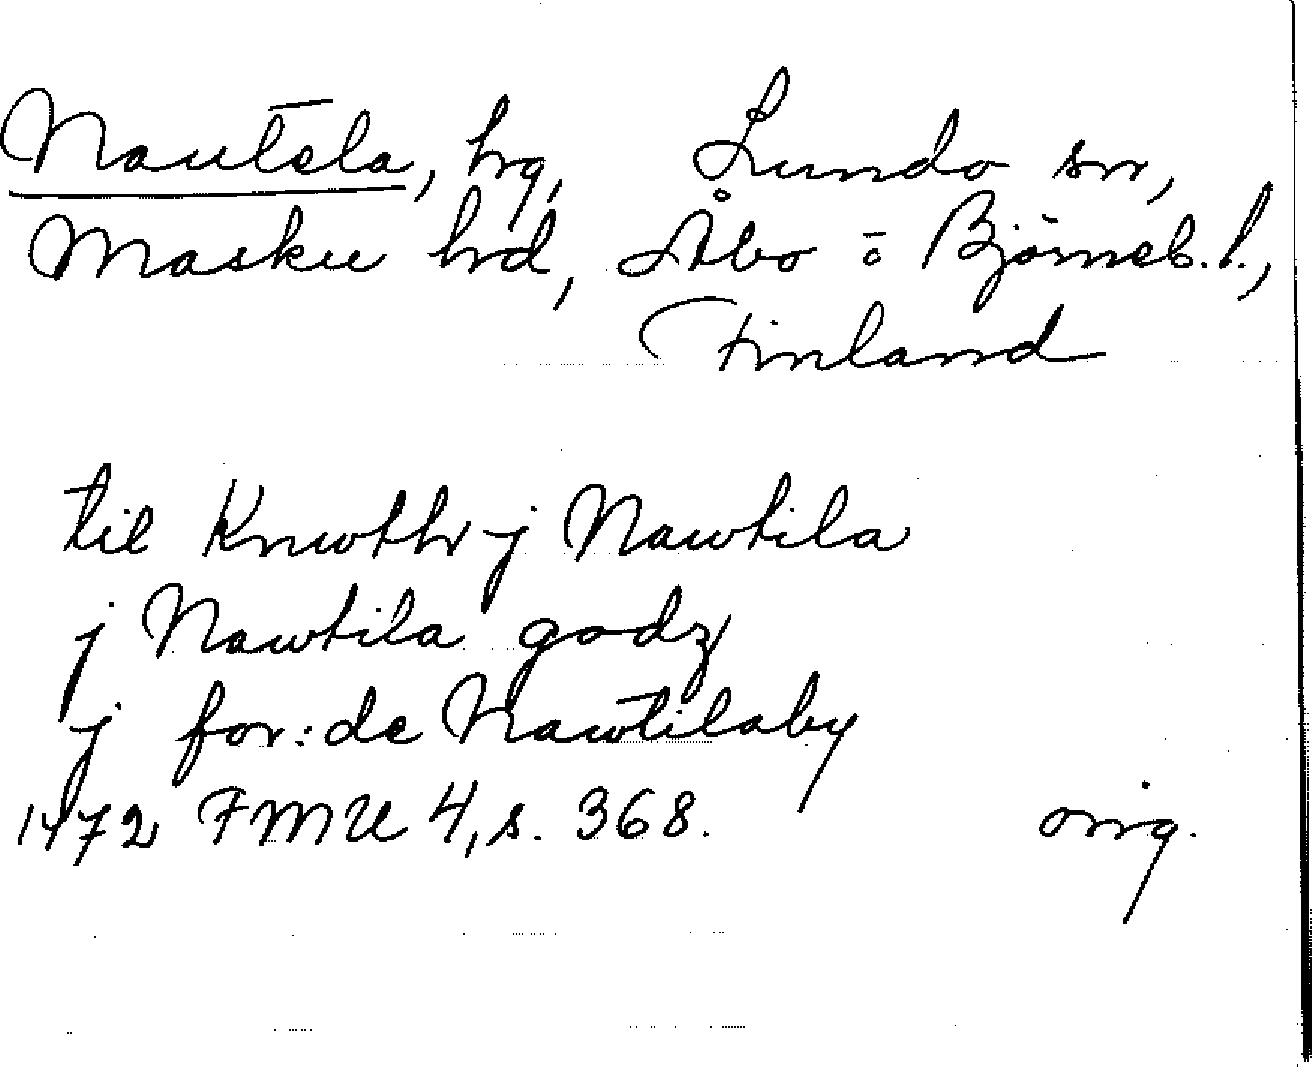 Nautela, hg, Lundo sn,
Masku hd, Åbo o Björneb. l.,
Finland
til Knwth j Nawtila
j Nawtila godz
j for:de Nawtilaby
1472 FMU 4, s. 368. orig.